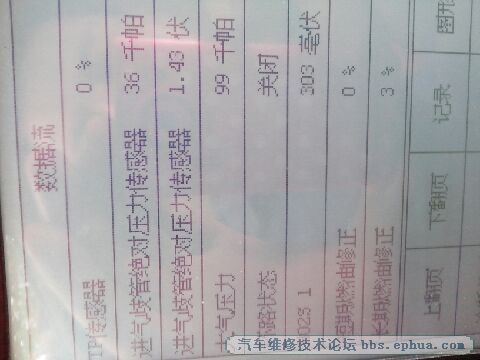 数据流
TP传感器 0 %
进气歧管绝对压力传感器 36 千帕
进气歧管绝对压力传感器 1.43 伏
大气压力 99 千帕
路状态 关闭
O2S 1 303 毫伏
短期燃油修正 0 %
长期燃油修正 3 %
上翻页 下翻页 记录 图形
汽车维修技术论坛 bbs.ephua.com